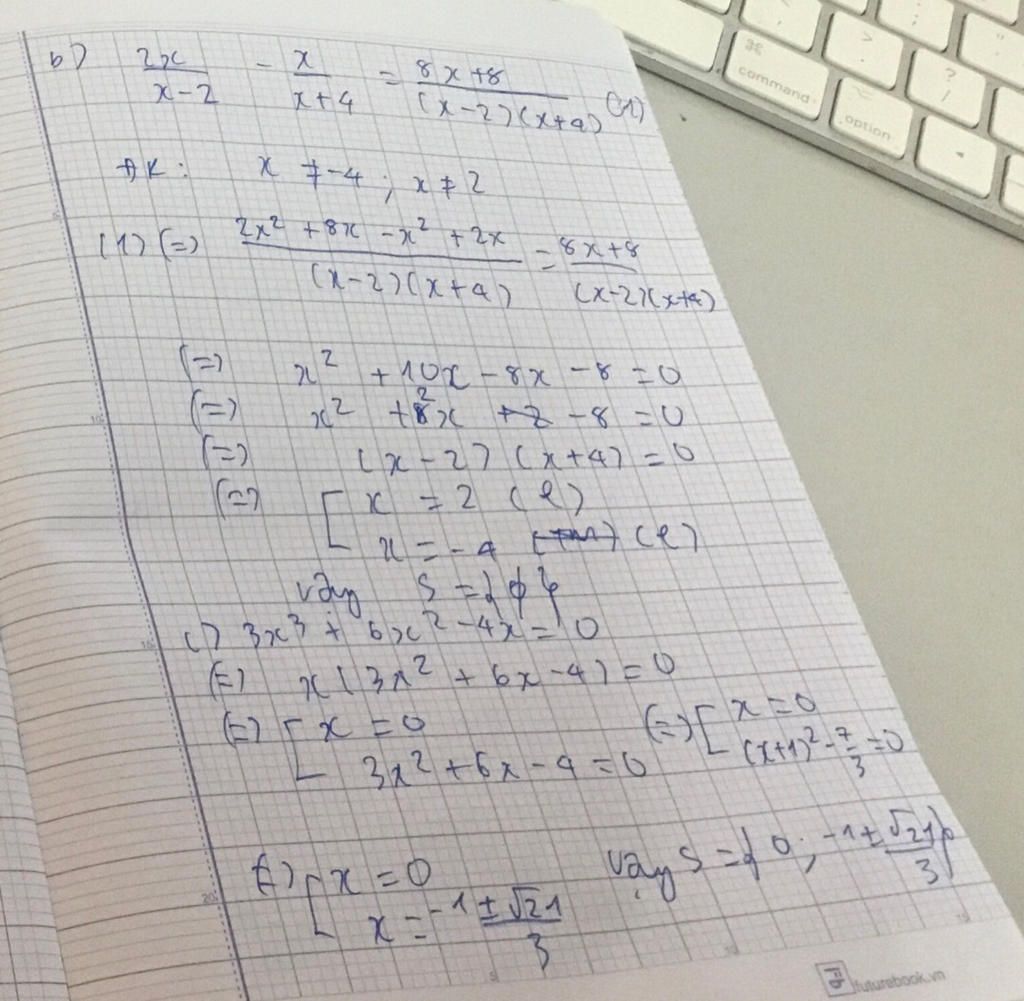 b) 2x/(x-2) - x/(x+4) = (8x+8)/((x-2)(x+4)) (1)
ĐK: x ≠ -4 ; x ≠ 2
(1) (=) (2x² + 8x - x² + 2x)/((x-2)(x+4)) = (8x+8)/((x-2)(x+4))
(=) x² + 10x - 8x - 8 = 0
(=) x² + 2x - 8 = 0
(=) (x-2) (x+4) = 0
(=) [ x = 2 (l)
x = -4 (l)
vậy S = {ϕ}
c) 3x³ + 6x² - 4x = 0
(=) x(3x² + 6x - 4) = 0
(=) [ x = 0
3x² + 6x - 4 = 0
(=) [ x = 0
(x+1)² - 7/3 = 0
(=) [ x = 0
x = -1 ± √21/3
vậy S = {0; -1 ± √21/3}
futurebook.vn
command
option